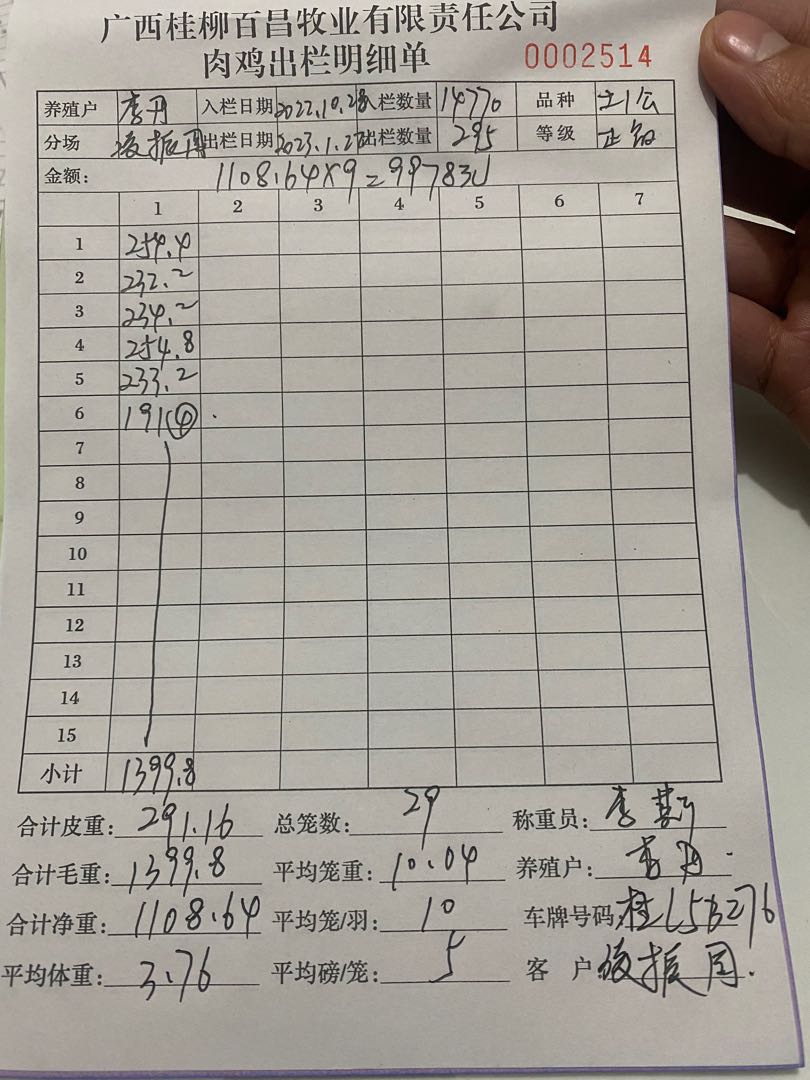 广西桂柳百昌牧业有限责任公司
肉鸡出栏明细单 0002514
养殖户 李丹 入栏日期 2022.10.28 入栏数量 14770 品种
分场 出栏日期 2023.1.27 出栏数量 295 等级
金额: 1108.64×9=9978元
1 2 3 4 5 6 7
1 254.4
2 232.2
3 234.2
4 254.8
5 233.2
6 191(4)
7
8
9
10
11
12
13
14
15
小计 1399.8
合计皮重: 291.16 总笼数: 29 称重员: 李
合计毛重: 1399.8 平均笼重: 10.04 养殖户: 李丹
合计净重: 1108.64 平均笼/羽: 10 车牌号码: 桂L5B276
平均体重: 3.76 平均磅/笼: 5 客 户